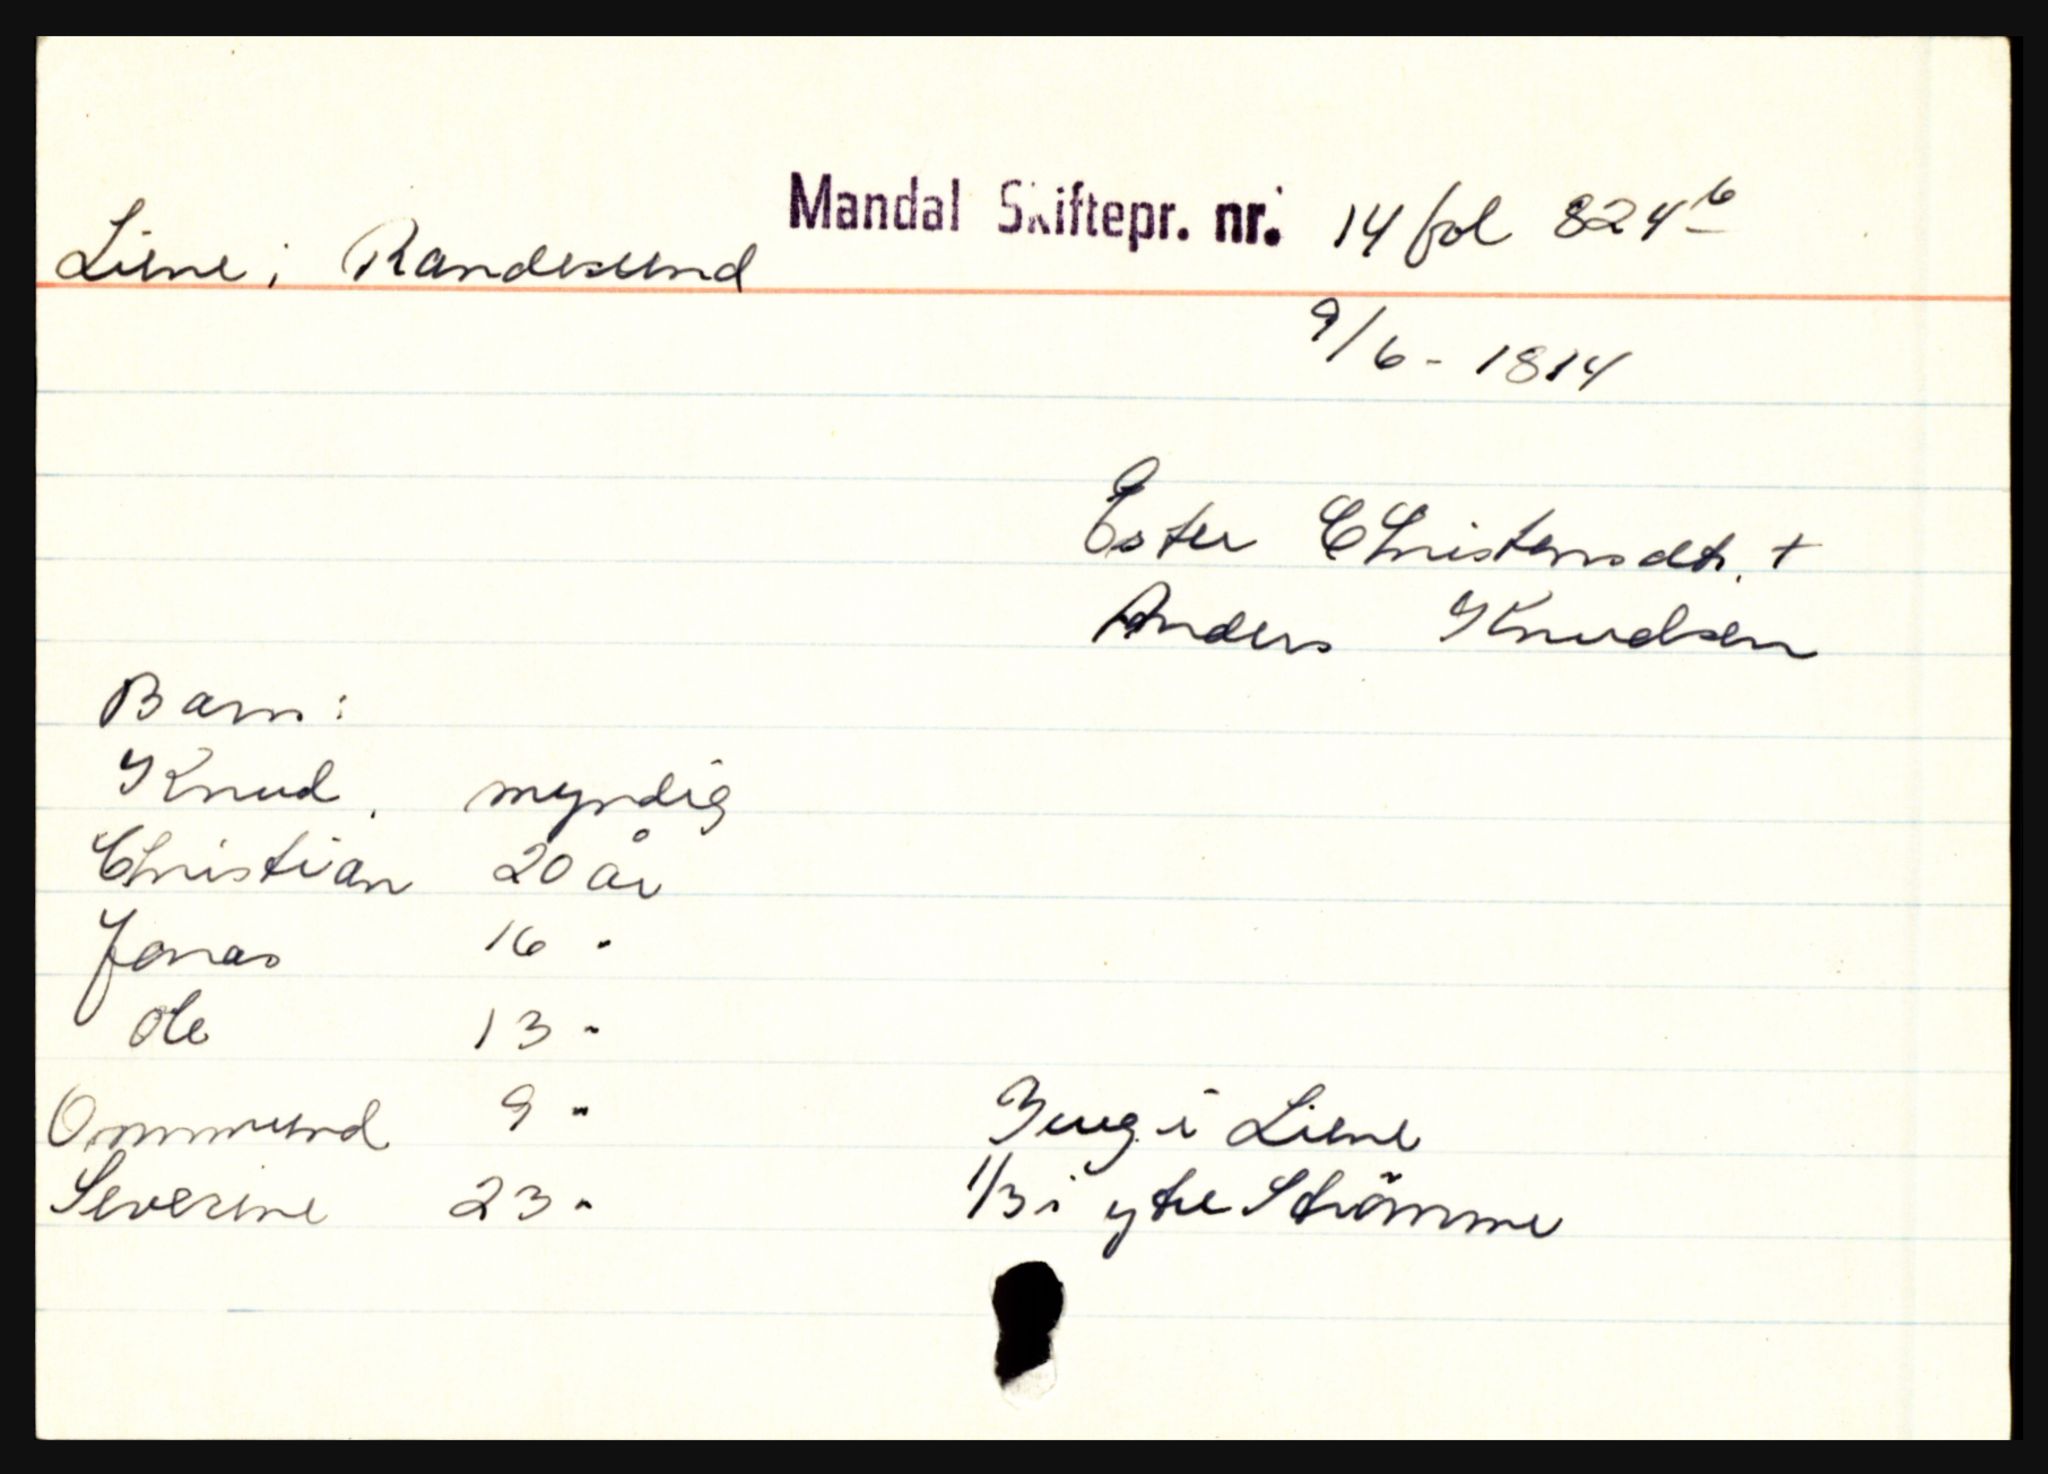 Mandal Skiftepr. nr. 14 fol 824b
Liene i Randesund
9/6 - 1814
Ester Christensdtr. +
Anders Knudsen
Barn:
Knud, myndig
Christian 20 år
Jonas 16 "
Ole 13 "
Ommund 9 "
Severine 23 "
i Liene
1/3 i ytre Strömme